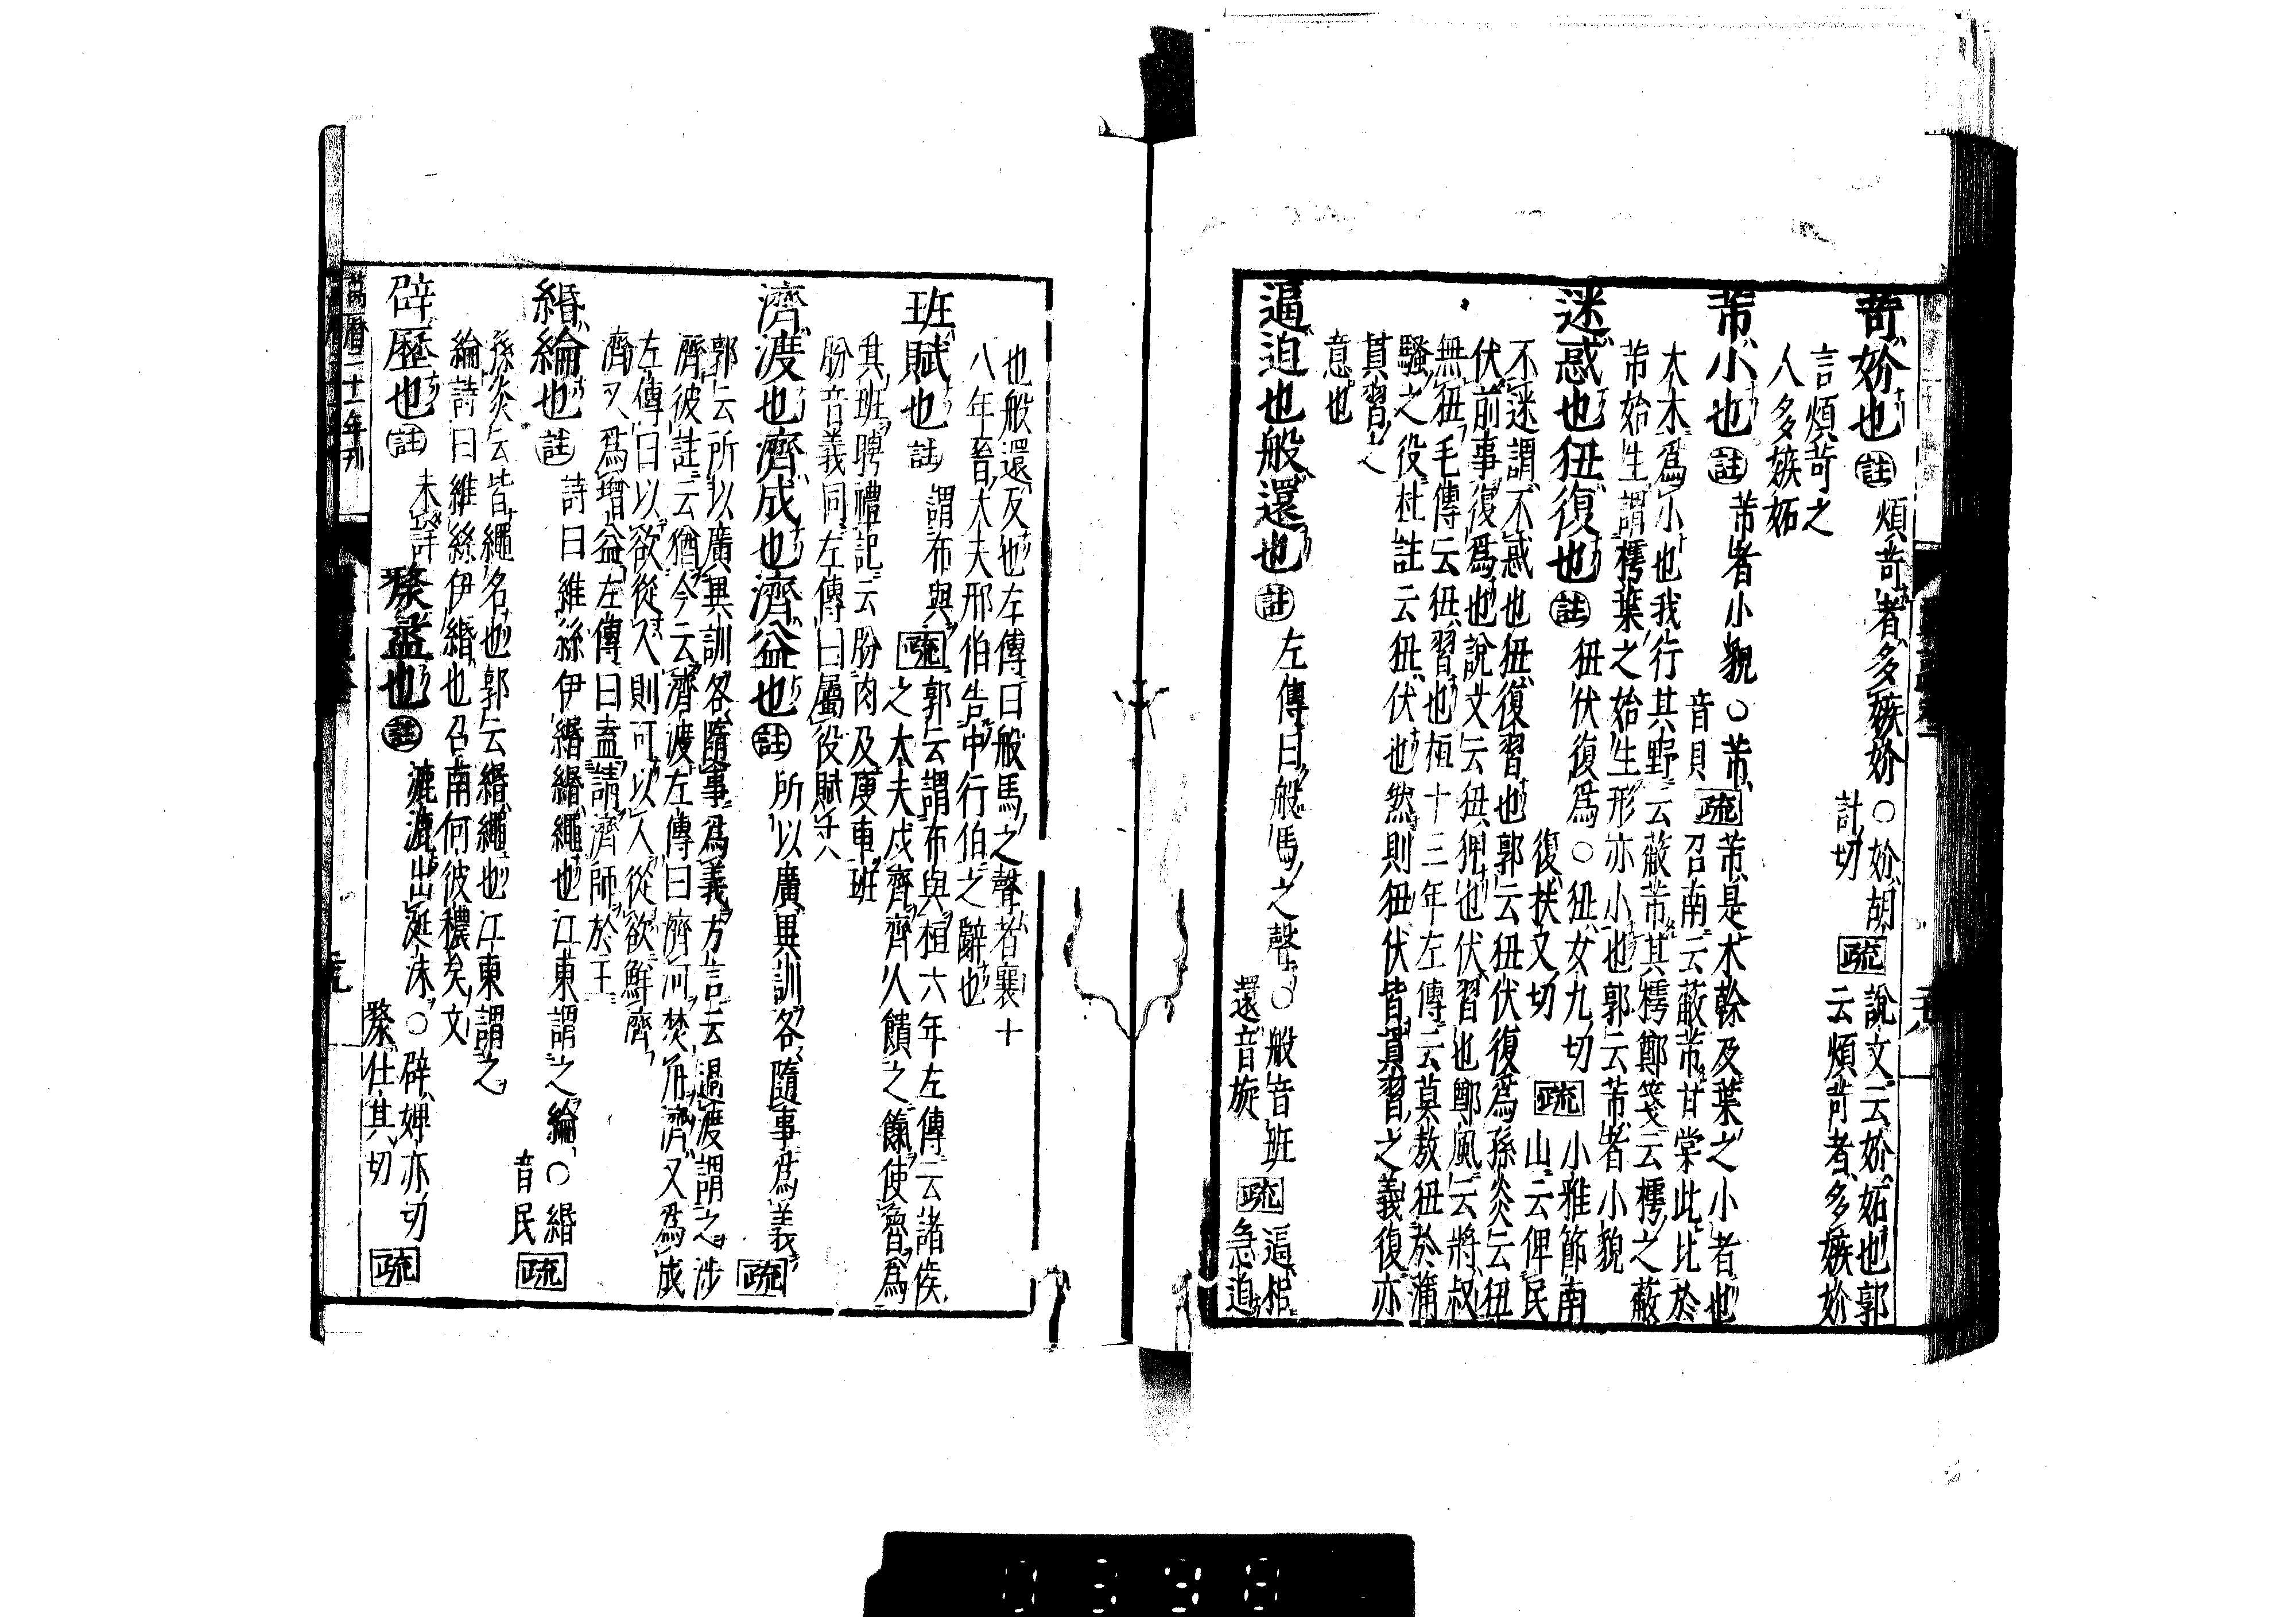 苛妎也 註 煩苛者多嫉妎 ○妎胡
計切 疏 說文云妎妬也郭
云煩苛者多嫉妎
言煩苛之
人多嫉妬
芾小也 註 芾者小貌 ○芾
音貝 疏 芾是木幹及葉之小者也
召南云蔽芾甘棠此比於
大木爲小也我行其野云蔽芾其樗鄭箋云樗之蔽
芾始生謂樗葉之始生形亦小也郭云芾者小貌
迷惑也狃復也 註 狃伏復爲 ○狃女九切
復扶又切 疏 小雅節南
山云俾民
不迷謂不惑也狃復習也郭云狃伏復爲孫炎云狃
伏前事復爲也說文云狃狎也伏習也鄭風云將叔
無狃毛傳云狃習也桓十三年左傳云莫敖狃於蒲
騷之役杜註云狃伏也然則狃伏皆貫習之義復亦
貫習之
意也
逼迫也般還也 註 左傳曰般馬之聲 ○般音班
還音旋 疏 逼相
急迫
也般還反也左傳曰般馬之聲者襄十
八年晉大夫邢伯告中行伯之辭也
班賦也 註 謂布與 疏 郭云謂布與桓六年左傳云諸侯
之大夫戍齊齊人饋之餼使魯爲
其班聘禮記云肦肉及廋車班
肦音義同左傳曰屬役賦丈
濟渡也濟成也濟益也 註 所以廣異訓各隨事爲義 疏
郭云所以廣異訓各隨事爲義方言云過渡謂之涉
濟彼註云猶今云濟渡左傳曰濟河焚舟濟又爲成
左傳曰以欲從人則可以人從欲鮮濟
濟又爲增益左傳曰盍請濟師於王
緡綸也 註 詩曰維絲伊緡緡繩也江東謂之綸 ○緡
音民 疏
孫炎云皆繩名也郭云緡繩也江東謂之
綸詩曰維絲伊緡也召南何彼穠矣文
辟歷也 註 未詳
漦盝也 註 漉漉出涎沫 ○辟婢亦切
漦仕其切 疏
萬曆二十一年刊